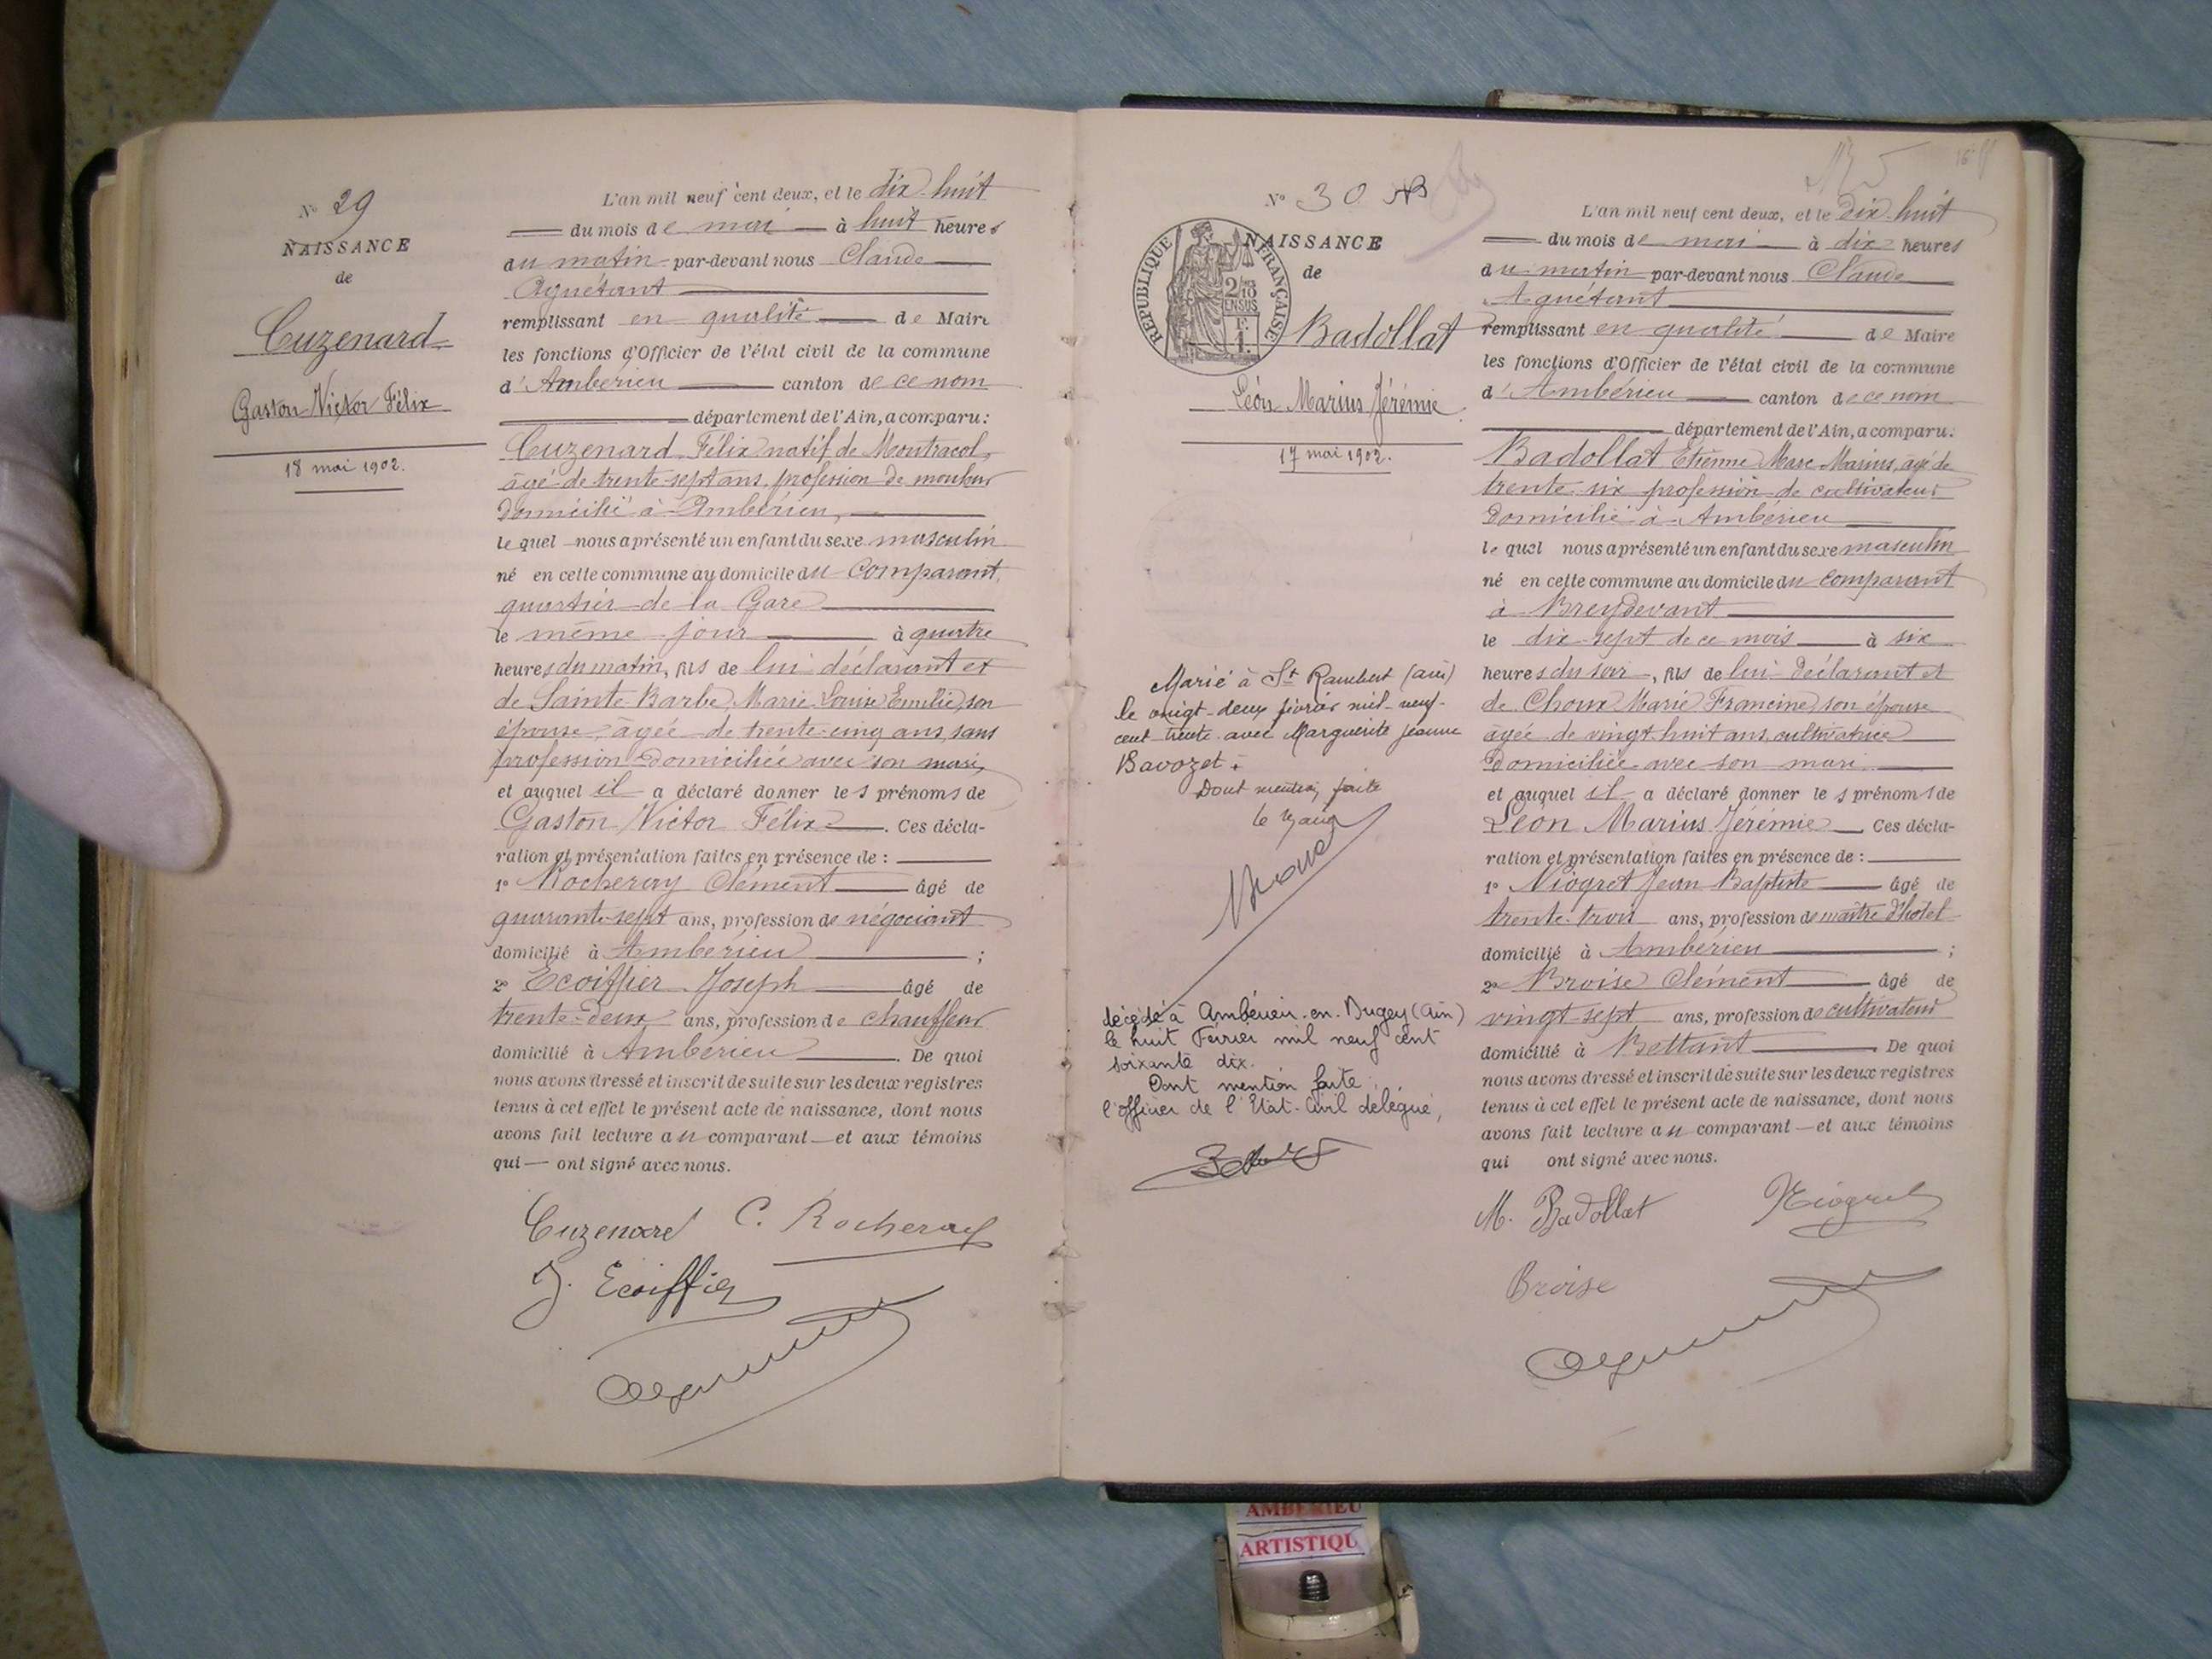 N° 29
NAISSANCE
de
Cuzenard
Gaston Victor Félix
18 mai 1902.
L'an mil neuf cent deux, et le dix huit
du mois de mai à huit heures
du matin par-devant nous Claude
Aguétant
remplissant en qualité de Maire
les fonctions d'Officier de l'état civil de la commune
d'Ambérieu canton de ce nom
département de l'Ain, a comparu:
Cuzenard Félix natif de Montracol,
âgé de trente-sept ans, profession de
domicilié à Ambérieu,
le quel nous a présenté un enfant du sexe masculin
né en cette commune au domicile du Comparant,
quartier de la Gare
le même jour à quatre
heures du matin, fils de lui déclarant et
de Sainte Barbe Marie Louise Emilie, son
épouse âgée de trente-cinq ans, sans
profession domiciliée avec son mari,
et auquel il a déclaré donner les prénoms de
Gaston Victor Félix. Ces décla-
ration et présentation faites en présence de :
1° Rocheray Clément âgé de
quarante-sept ans, profession de négociant
domicilié à Ambérieu ;
2° Ecoiffier Joseph âgé de
trente-deux ans, profession de chauffeur
domicilié à Ambérieu. De quoi
nous avons dressé et inscrit de suite sur les deux registres
tenus à cet effet le présent acte de naissance, dont nous
avons fait lecture au comparant et aux témoins
qui ont signé avec nous.
Cuzenard C. Rocheray
J. Ecoiffier
N° 30
NAISSANCE
de
REPUBLIQUE FRANÇAISE
Badollat
Léon Marius Jérémie
17 mai 1902.
Marié à St Rambert (ain)
le vingt-deux février mil-neuf-
cent trente avec Marguerite Jeanne
Bavozet.
Dont mention faite
décédé à Ambérieu-en-Bugey (Ain)
le huit Février mil neuf cent
soixante dix.
Dont mention faite.
l'officier de l'Etat-Civil délégué,
L'an mil neuf cent deux, et le dix huit
du mois de mai à dix heures
du matin par-devant nous Claude
Aguétant
remplissant en qualité de Maire
les fonctions d'Officier de l'état civil de la commune
d'Ambérieu canton de ce nom
département de l'Ain, a comparu:
Badollat Etienne Marc Marius, âgé de
trente six profession de cultivateur
domicilié à Ambérieu
le quel nous a présenté un enfant du sexe masculin
né en cette commune au domicile du comparant
à Breydevant
le dix-sept de ce mois à six
heures du soir, fils de lui déclarant et
de Choux Marie Francine son épouse
âgée de vingt huit ans, cultivatrice
domiciliée avec son mari
et auquel il a déclaré donner les prénoms de
Léon Marius Jérémie. Ces décla-
ration et présentation faites en présence de :
1° Niogret Jean Baptiste âgé de
trente-trois ans, profession de maître d'hôtel
domicilié à Ambérieu ;
2° Broise Clément âgé de
vingt-sept ans, profession de cultivateur
domicilié à Bettant. De quoi
nous avons dressé et inscrit de suite sur les deux registres
tenus à cet effet le présent acte de naissance, dont nous
avons fait lecture au comparant et aux témoins
qui ont signé avec nous.
M. Badollat Niogret
Broise
AMBERIEU
ARTISTIQU